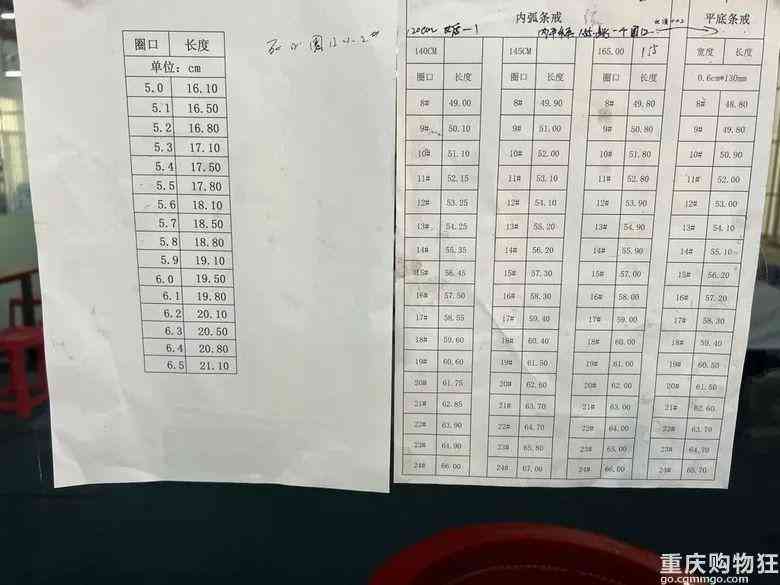 圈口 长度
单位：cm
5.0 16.10
5.1 16.50
5.2 16.80
5.3 17.10
5.4 17.50
5.5 17.80
5.6 18.10
5.7 18.50
5.8 18.80
5.9 19.10
6.0 19.50
6.1 19.80
6.2 20.10
6.3 20.50
6.4 20.80
6.5 21.10
内弧条戒 平底条戒
140CM 145CM 165.00 宽度 长度
圈口 长度 圈口 长度 圈口 长度 0.6cm*130mm
8# 49.00 8# 49.90 8# 49.80 8# 48.80
9# 50.10 9# 51.00 9# 50.80 9# 49.80
10# 51.10 10# 52.00 10# 51.80 10# 50.90
11# 52.15 11# 53.10 11# 52.80 11# 52.00
12# 53.25 12# 54.10 12# 53.90 12# 53.00
13# 54.25 13# 55.20 13# 54.90 13# 54.10
14# 55.35 14# 56.20 14# 55.90 14# 55.10
15# 56.45 15# 57.30 15# 57.00 15# 56.20
16# 57.50 16# 58.30 16# 58.00 16# 57.20
17# 58.55 17# 59.40 17# 59.00 17# 58.30
18# 59.60 18# 60.40 18# 60.00 18# 59.40
19# 60.60 19# 61.50 19# 61.00 19# 60.50
20# 61.75 20# 62.60 20# 62.00 20# 61.50
21# 62.85 21# 63.70 21# 63.00 21# 62.60
22# 63.90 22# 64.70 22# 64.00 22# 63.70
23# 64.90 23# 65.80 23# 65.00 23# 64.70
24# 66.00 24# 67.00 24# 66.00 24# 65.70
重庆购物狂
go.cqmmgo.com